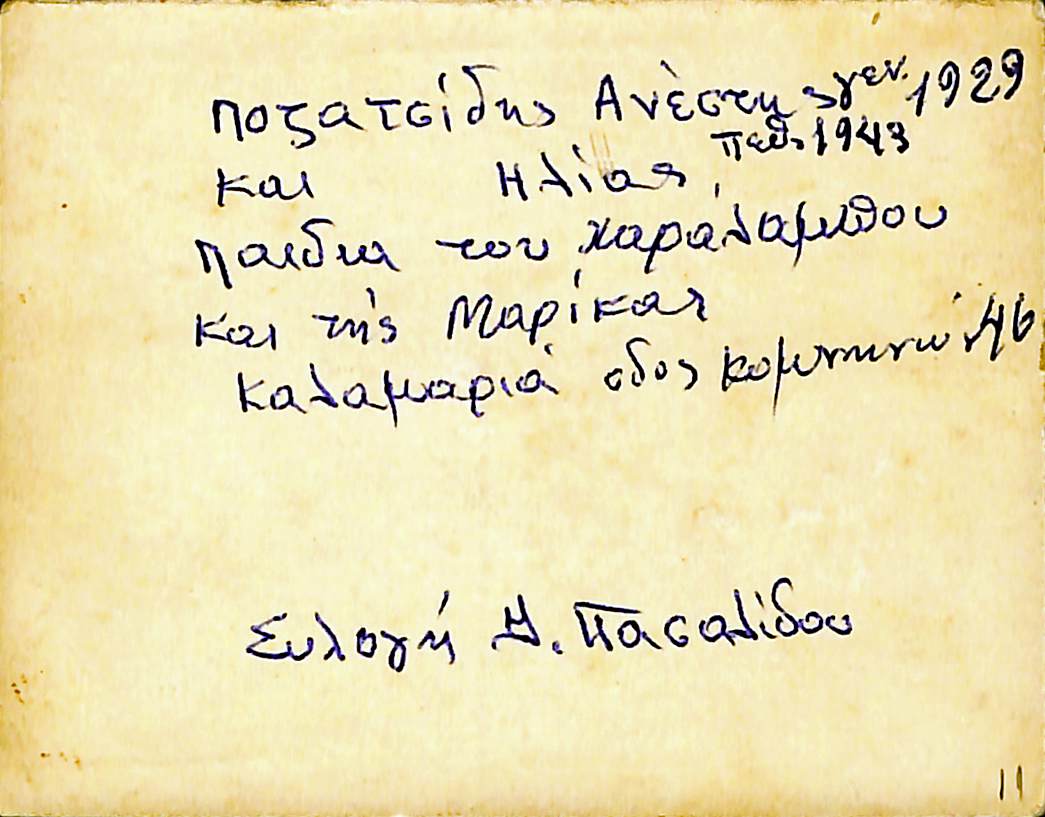 Ποζατσίδης Ανέστης γεν. 1929
και Ηλίας, πεθ. 1943
παιδια του Χαράλαμπου
και της Μαρίκας
Καλαμαριά οδος Κομνηνών 46
Συλογή Δ. Πασαλίδου
11